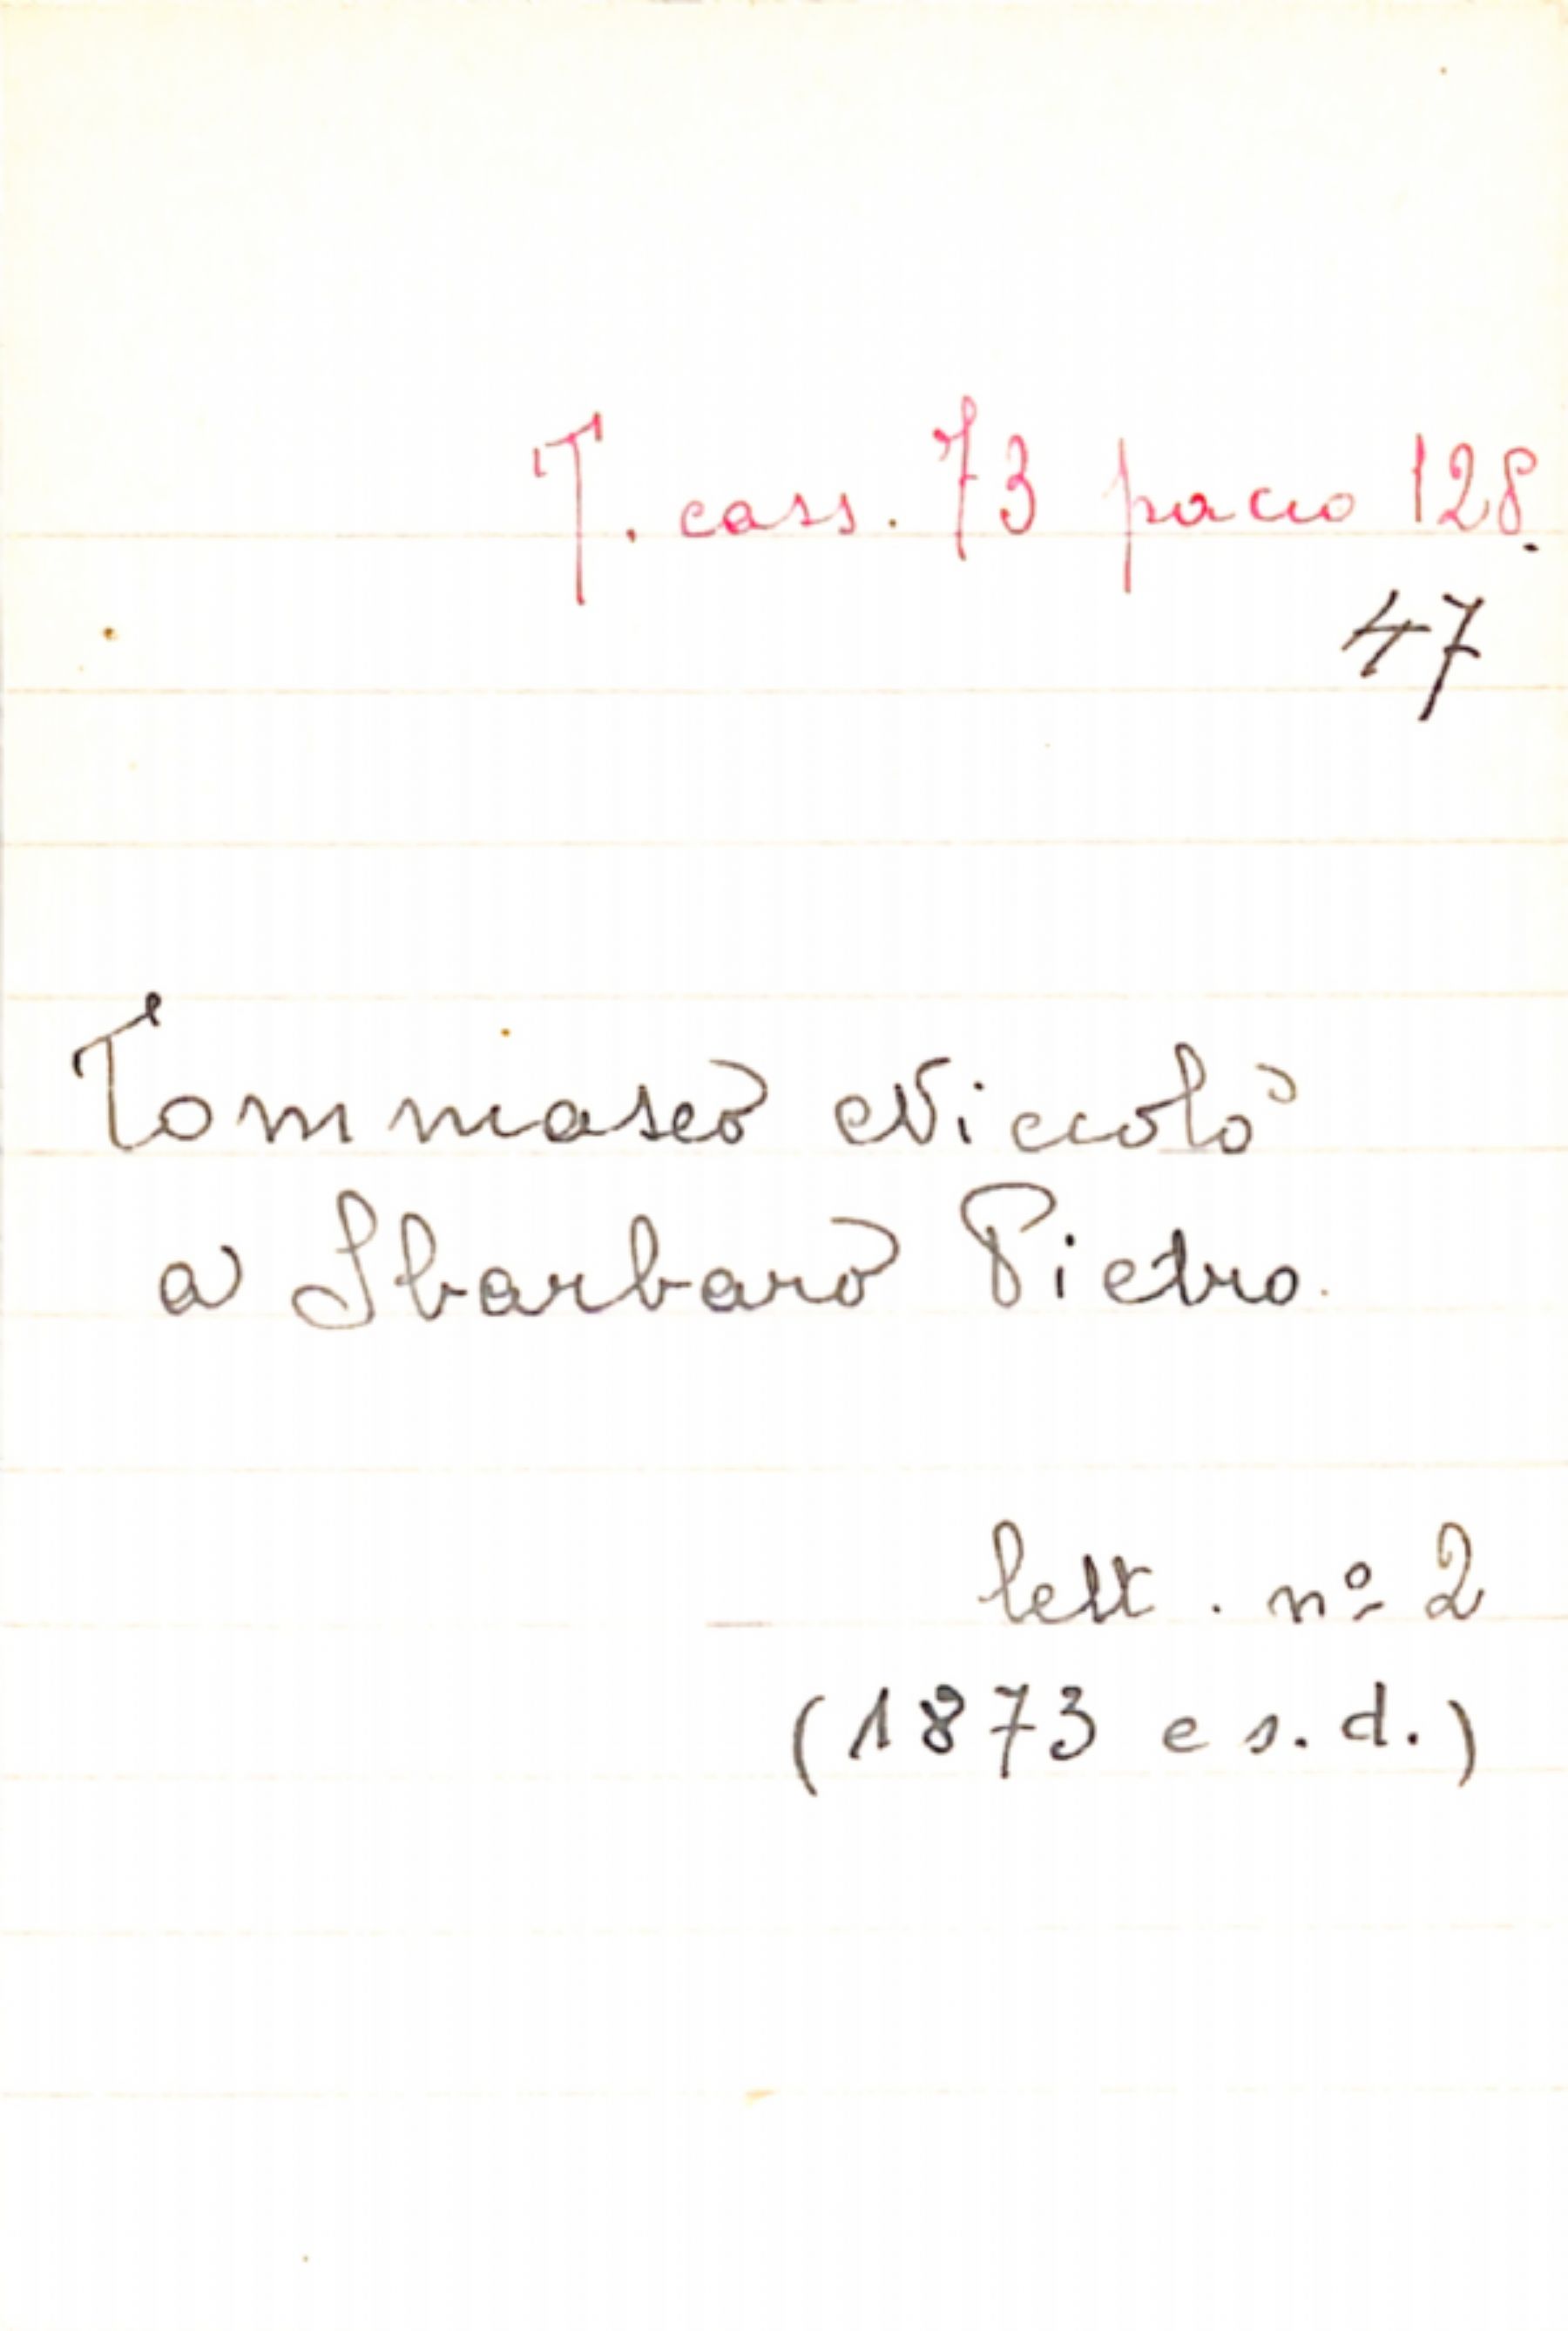 T. cass. 73 pacco 128.
47
Tommaseo Niccolò
a Sbarbaro Pietro.
lett. nº 2
(1873 e s.d.)